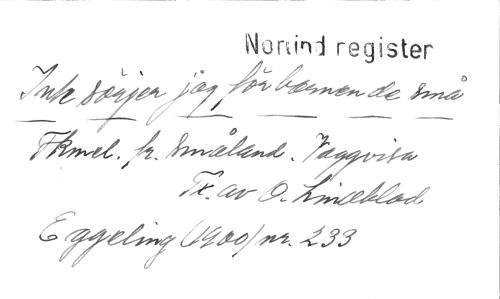 Norlind register
Inte sörjer jag för barnen de små
Fkmel. fr. Småland. Vaggvisa
Tx. av O. Lindblad
Eggeling (1900) nr. 233